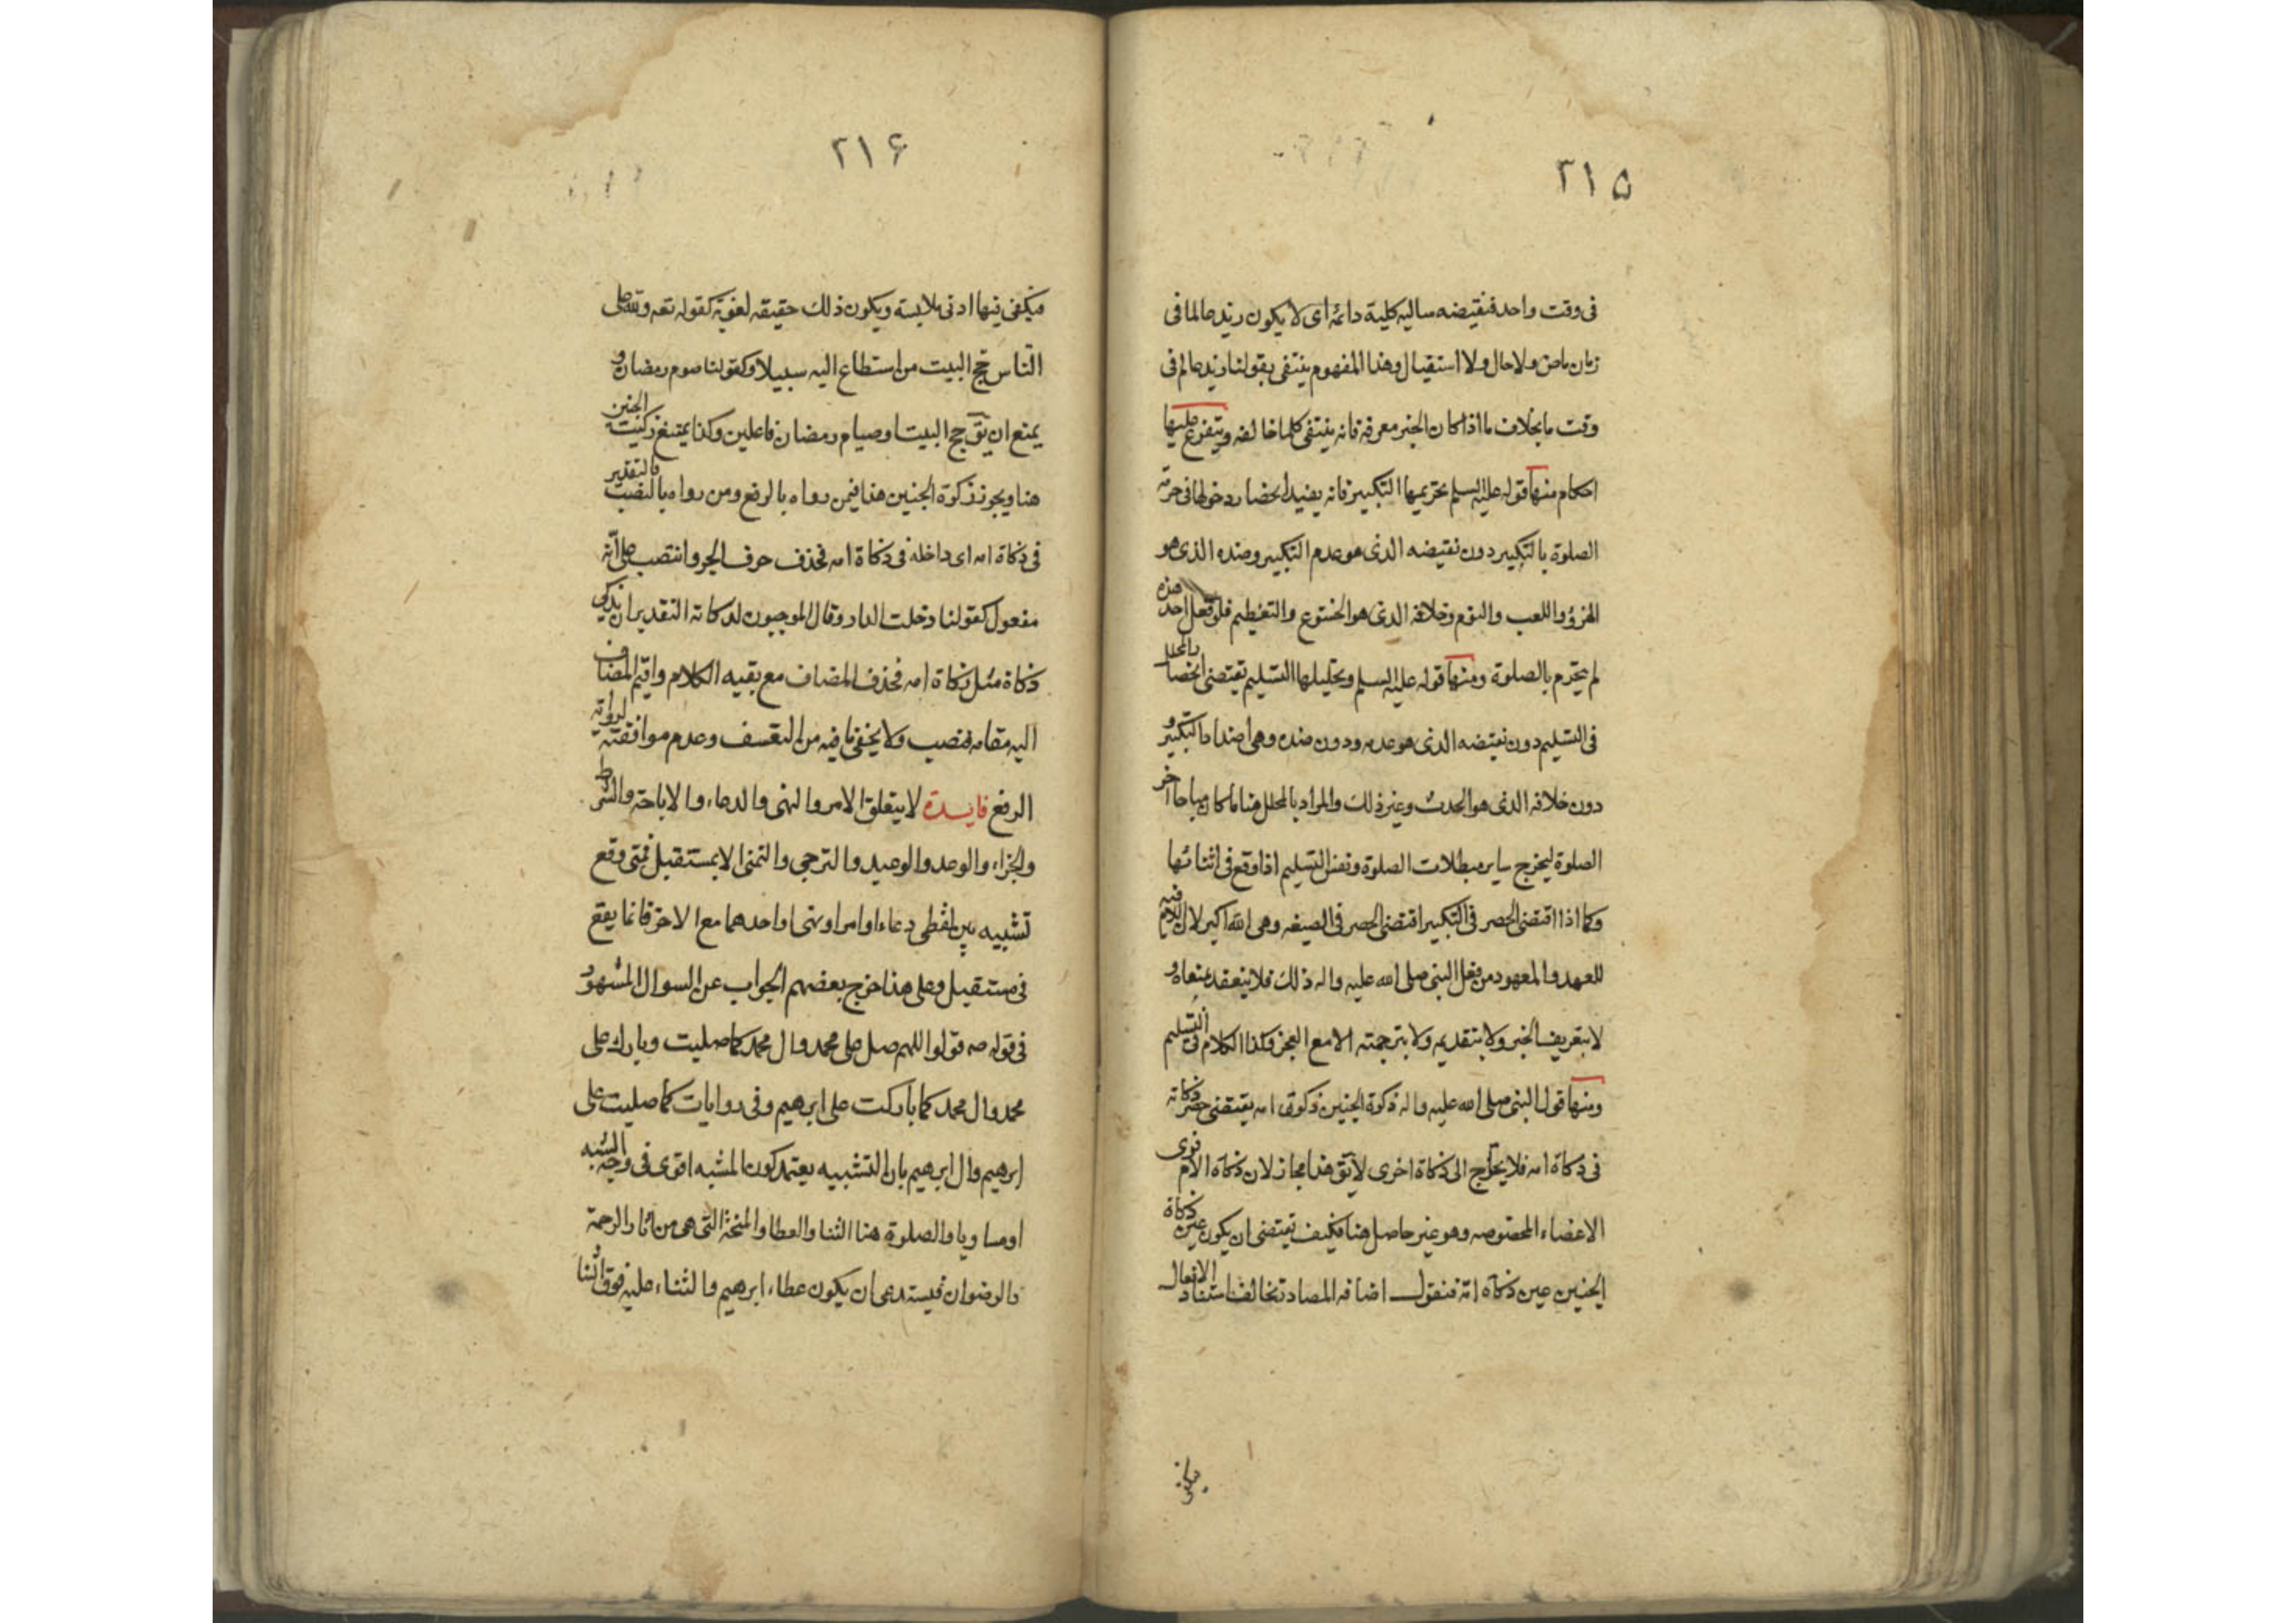 ٢١٥
فى وقت واحد فنقيضه سالبه كلية دائمة اى لا يكون زيد عالما فى
زمان ماض ولا حال ولا استقبال وهذا المفهوم ينتفى بقولنا زيد عالم فى
وقت ما بخلاف ما اذا كان الخبر معرفة فانه ينتفى كلما خالفه ويتفرع عليها
احكام منها قوله عليه السلم تحريمها التكبير فانه يفيد انحصار دخولها فى حرمة
الصلوة بالتكبير دون نقيضه الذى هو عدم التكبير وضده الذى هو
الهزؤ واللعب والنوم وخلافه الذى هو الخشوع والتعظيم فلو فعل احد هذه
لم يتحرم بالصلوة ومنها قوله عليه السلم وتحليلها التسليم تقتضى انحصار المحلل
فى التسليم دون نقيضه الذى هو عدمه ودون ضده وهى اضداد التكبير و
دون خلافه الذى هو الحدث وغير ذلك والمراد بالمحلل هنا ما كان مباحا آخر
الصلوة ليخرج ساير مبطلات الصلوة ونفس التسليم اذا وقع فى اثنائها
وكما اذا اقتضى الحصر فى التكبير اقتضى الحصر فى الصيغه وهى الله اكبر لان اللام فيه
للعهد والمعهود من فعل النبى صلى الله عليه واله ذلك فلا ينعقد بمعناه و
لا بتعريف الخبر ولا بتقديمه ولا بترجمته الا مع العجز وكذا الكلام فى التسليم
ومنها قول النبى صلى الله عليه واله ذكوة الجنين ذكوة امه يقتضى حصر ذكاته
فى ذكاة امه فلا يحتاج الى ذكاة اخرى لا يق هذا مجاز لان ذكاة الام فرى
الاعضاء المخصوصه وهو غير حاصل هنا فكيف تقتضى ان يكون عين ذكاة
الجنين عين ذكاة امه فنقول اضافه المصادر تخالف اسناد الافعال
فيكفى
٢١۶
فيكفى فيها ادنى ملابسة ويكون ذلك حقيقه لغوية كقوله تعه ولله على
الناس حج البيت من استطاع اليه سبيلا وكقولنا صوم رمضان و
يمنع ان يق حج البيت وصيام رمضان فاعلين وكذا يمتنع ذكيت الجنين
هنا ويجوز ذكوة الجنين هذا فيمن رواه بالرفع ومن رواه بالنصب فالتقدير
فى ذكاة امه اى داخلة فى ذكاة امه فحذف حرف الجر وانتصب على انه
مفعول كقولنا دخلت الدار وقال الموجبون لذكاته التقدير ان يذكى
ذكاة مثل ذكاة امه فحذف المضاف مع بقيه الكلام واقيم المضاف
اليه مقامه فنصب ولا يخفى ما فيه من التعسف وعدم موافقته لرواية
الرفع فايدة لا يتعلق الامر والنهى والدعاء والاباحة والشرط
والجزاء والوعد والوعيد والترجى والتمنى الا بمستقبل فمتى وقع
تشبيه بين لفظى دعاء او امر او نهى او احدهما مع الاخر فانما يقع
فى مستقبل وعلى هذا خرج بعضهم الجواب عن السوال المشهور
فى قوله صه قولوا اللهم صل على محمد وال محمد كما صليت وبارك على
محمد وال محمد كما باركت على ابرهيم وفى روايات كما صليت على
ابرهيم وال ابرهيم بان التشبيه يعتمد كون المشبه اقوى فى وجه الشبه
او مساويا والصلوة هنا الثنا والعطا والمنحة التى هى من آثار الرحمة
والرضوان فيستدعى ان يكون عطاء ابرهيم والثناء عليه فوق الثنا